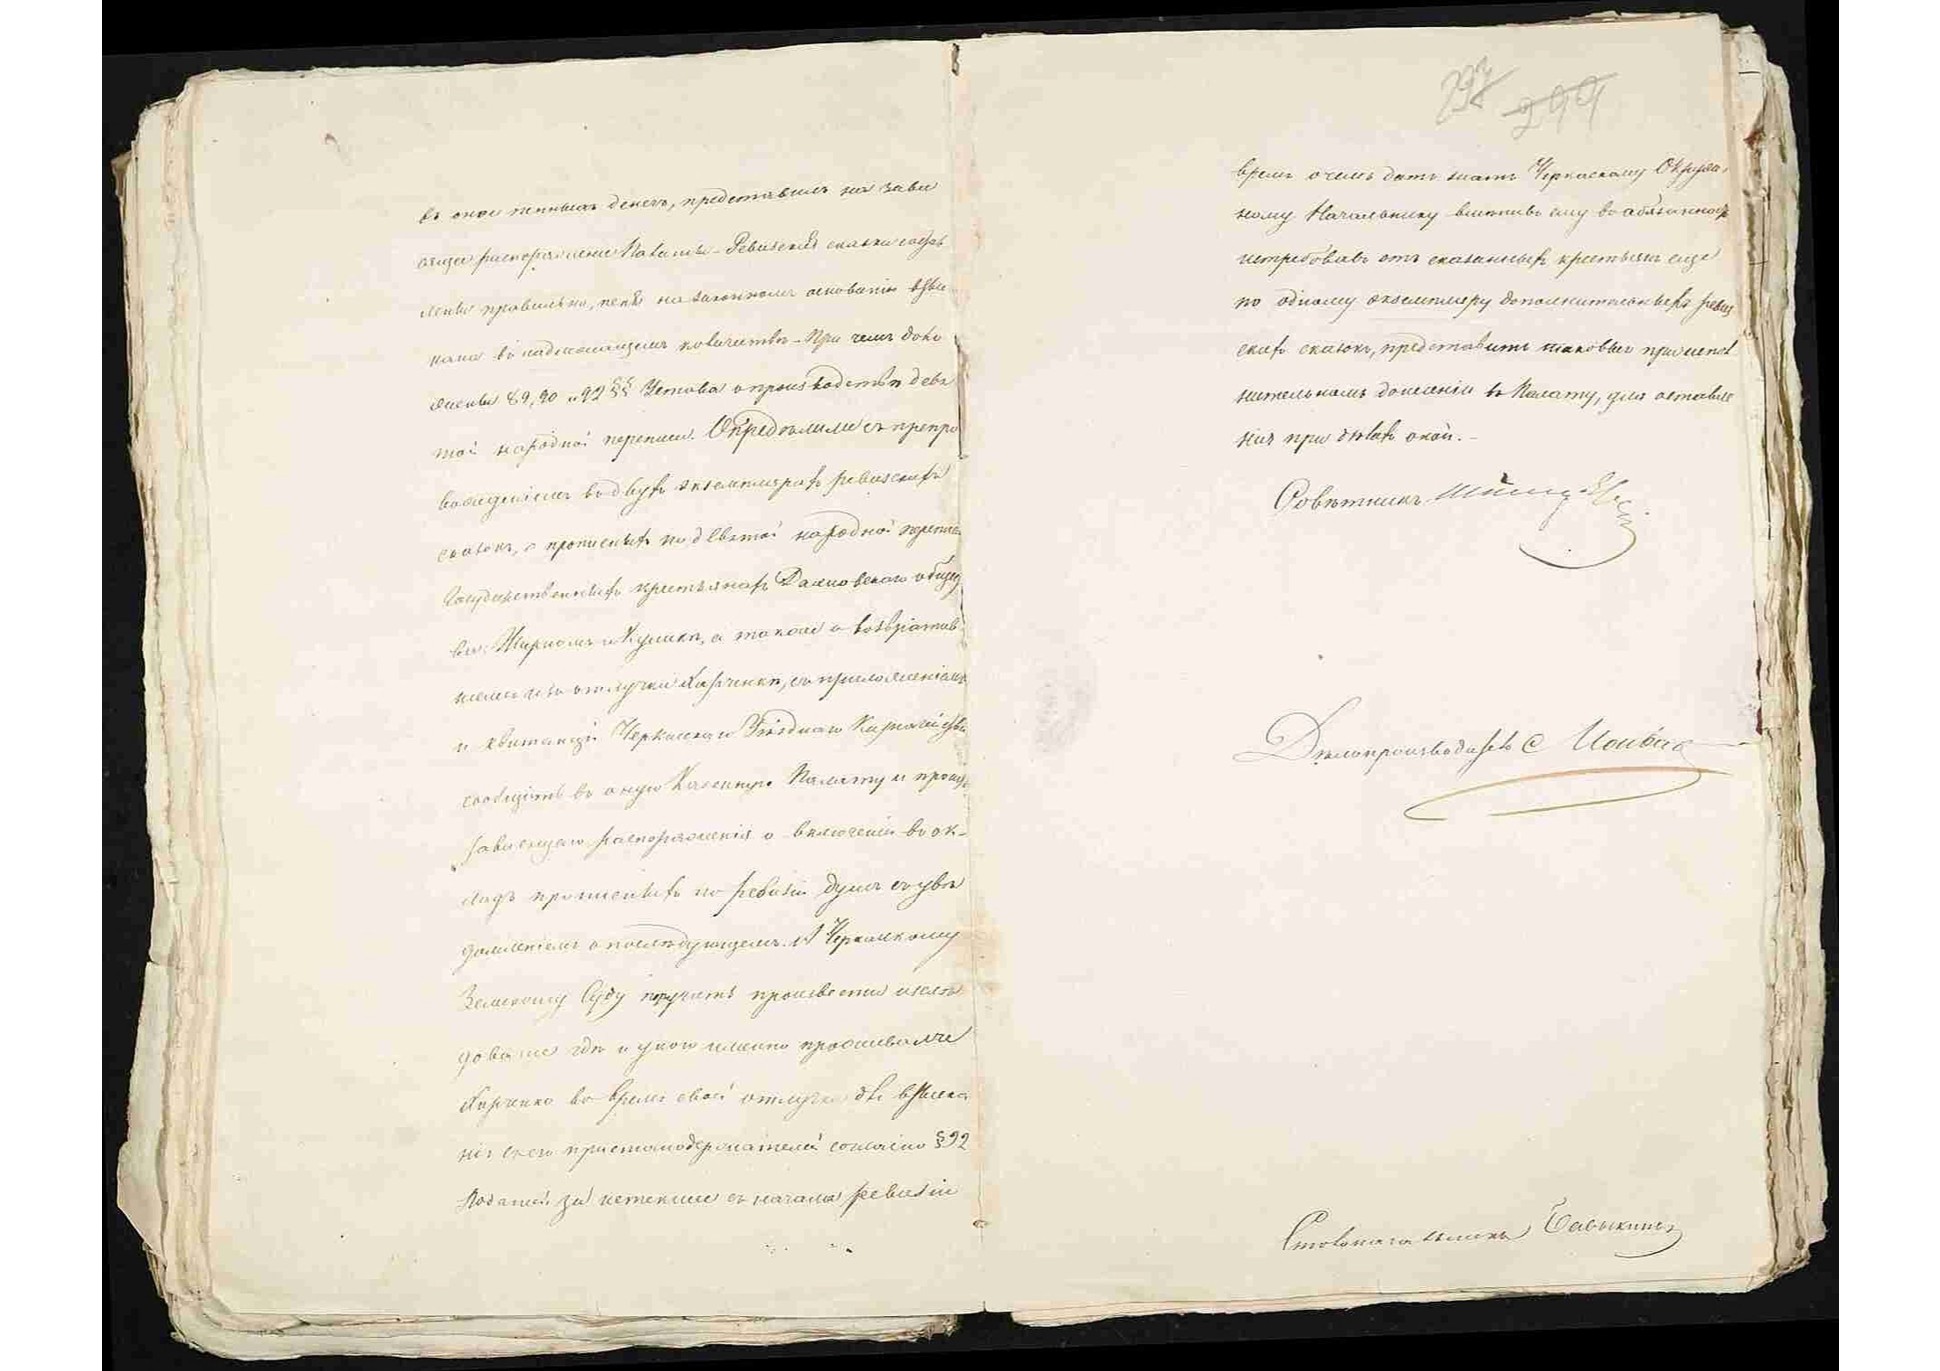 въ оное пенныхъ денегъ, представилъ на зави
сящее распоряженіе Палаты – Ревизскія сказки состав
лены правильно, пени на законномъ основаніи взыс
каны въ надлежащемъ количествѣ – При чемъ доло
жены 89, 90 и 92 §§ Устава о производствѣ девя
той народной переписи. Опредѣлили: съ препро
вожденіемъ въ двухъ экземплярахъ ревизскихъ
сказокъ, о прописныхъ по девятой народной переписи
Государственныхъ крестьянахъ общест
ва: и Кулика, а также о возвратив
шемся изъ отлучки Харченкѣ, съ приложеніемъ
и квитанціи Черкасскаго Уѣзднаго Казначейства
сообщить въ оную Казенную Палату и просить
зависящаго распоряженія о включеніи въ ок-
ладъ прописныхъ по ревизіи душъ съ увѣ
домленіемъ о послѣдующемъ. А Черкасскому
Земскому Суду поручить произвести изслѣ
дованіе гдѣ и у кого именно проживалъ
Харченко во время своей отлучки для взыска
нія съ его пристанодержателей согласно § 92
податей за истекшее съ начала ревизіи
297 299
время о чемъ дать знать Черкаскому Окруж-
ному Начальнику вмѣнивъ ему въ обязанность
истребовавъ отъ сказанныхъ крестьянъ еще
по одному экземпляру дополнительныхъ ревиз
скихъ сказокъ, представить таковые при испол
нительномъ донесеніи въ Палату, для оставле
нія при дѣлахъ оной. –
Совѣтникъ
Дѣлопроизводитель
Столоначальникъ Бабыкинъ